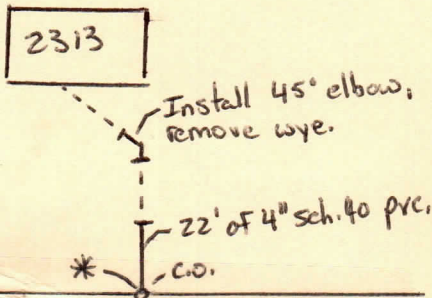 2313
Install 45° elbow,
remove wye.
22' of 4" sch. 40 pvc.
* c.o.